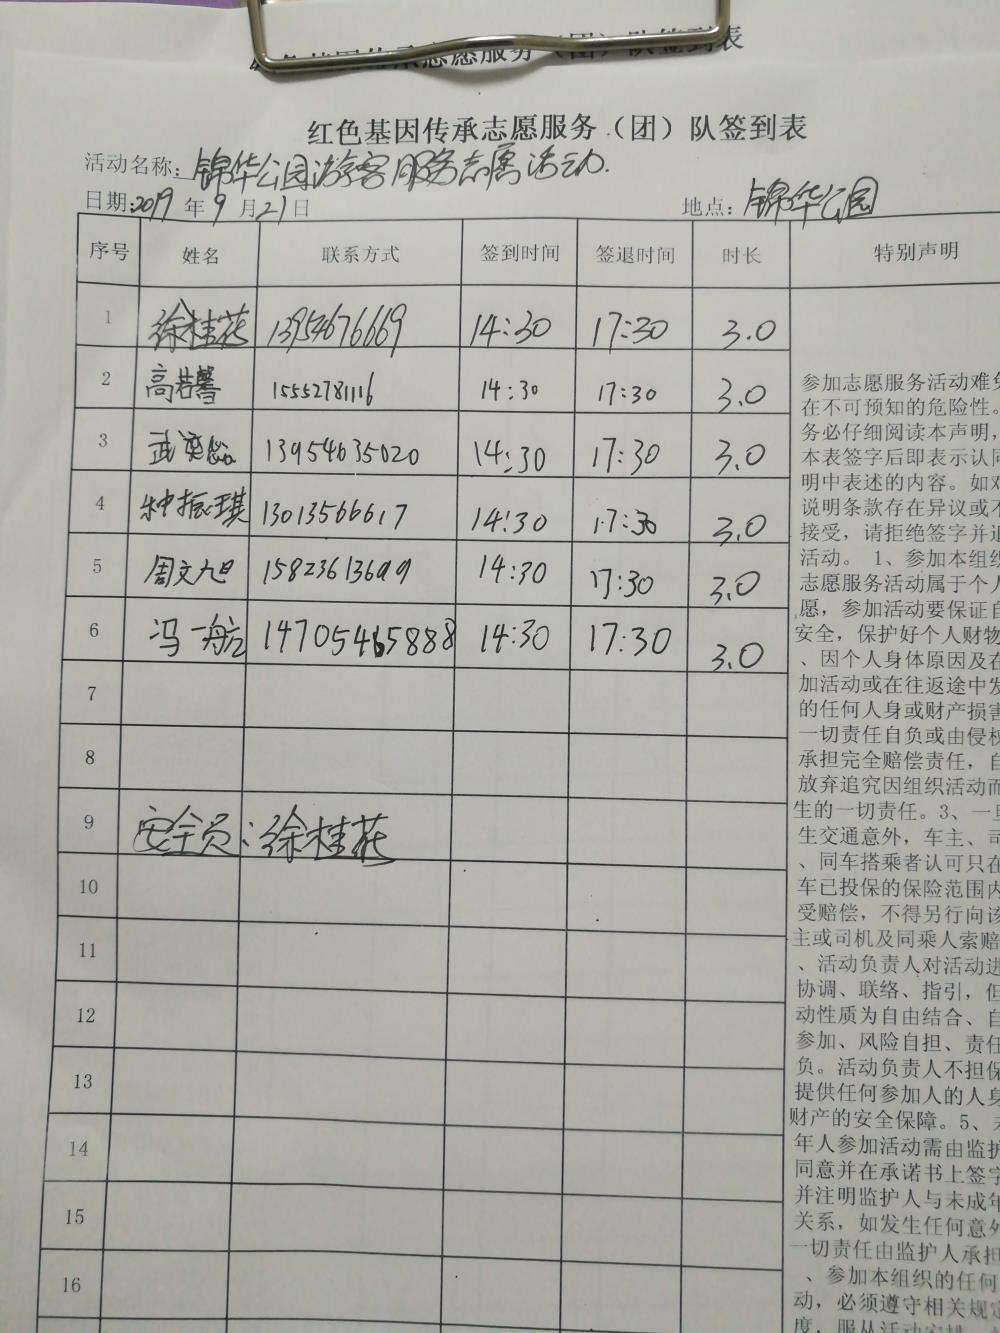 红色基因传承志愿服务（团）队签到表
活动名称：锦华公园游客服务志愿活动.
日期:2019年9月21日 地点：锦华公园
序号 姓名 联系方式 签到时间 签退时间 时长 特别声明
1 徐桂花 13954676669 14:30 17:30 3.0
2 高若馨 15552781116 14:30 17:30 3.0
3 武 13954635020 14:30 17:30 3.0
4 种振琪 13013566617 14:30 17:30 3.0
5 周文旭 15823613699 14:30 17:30 3.0
6 冯一航 14705465888 14:30 17:30 3.0
7
8
9 安全员：徐桂花
10
11
12
13
14
15
16
参加志愿服务活动难免
在不可预知的危险性。
务必仔细阅读本声明，
本表签字后即表示认同
明中表述的内容。如对
说明条款存在异议或不
接受，请拒绝签字并退
活动。 1、参加本组织
志愿服务活动属于个人
愿，参加活动要保证自
安全，保护好个人财物
、因个人身体原因及在
加活动或在往返途中发
的任何人身或财产损害
一切责任自负或由侵权
承担完全赔偿责任，自
放弃追究因组织活动而
生的一切责任。3、一旦
生交通意外，车主、司
、同车搭乘者认可只在
车已投保的保险范围内
受赔偿，不得另行向该
主或司机及同乘人索赔
、活动负责人对活动进
协调、联络、指引，但
动性质为自由结合、自
参加、风险自担、责任
负。活动负责人不担保
提供任何参加人的人身
财产的安全保障。5、未
年人参加活动需由监护
同意并在承诺书上签字
并注明监护人与未成年
关系，如发生任何意外
一切责任由监护人承担
、参加本组织的任何
动，必须遵守相关规定
度，服从活动安排